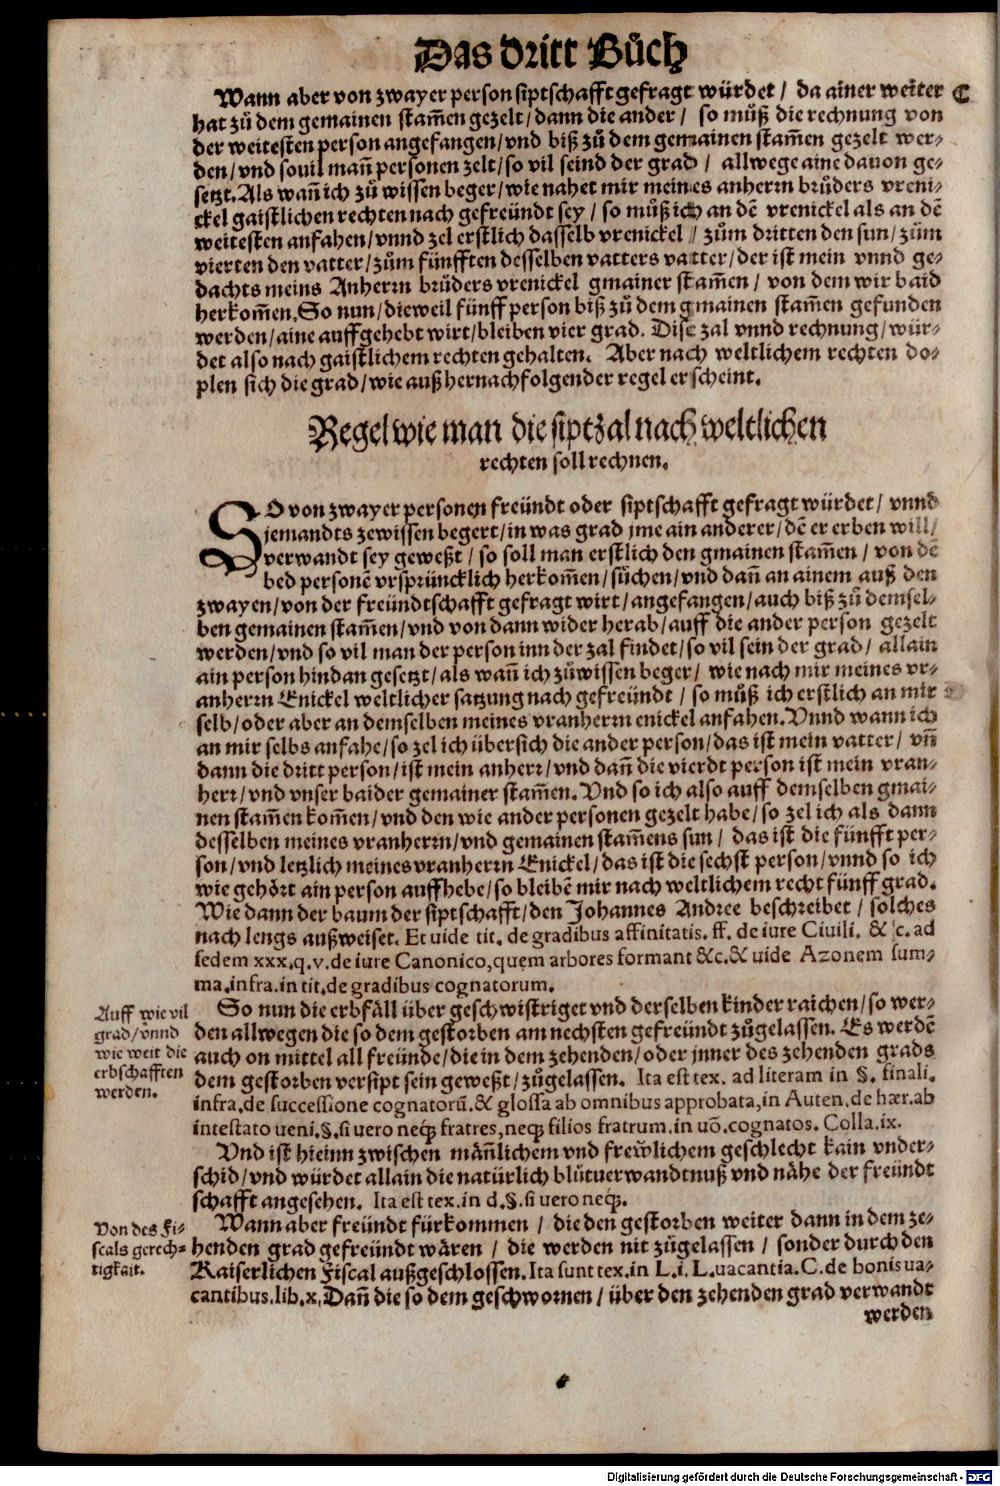 Das dritt Bůch
Wann aber von zwayer person siptschafft gefragt würdet / da ainer weiter
hat zů dem gemainen stam̃en gezelt / dann die ander / so můß die rechnung von
der weitesten person angefangen / vnd biß zů dem gemainen stam̃en gezelt wer⸗
den / vnd souil man̄ personen zelt / so vil seind der grad / allwege aine dauon ge⸗
setzt. Als wan̄ ich zů wissen beger / wie nahet mir meines anherrn brůders vreni⸗
ckel gaistlichen rechten nach gefreündt sey / so můß ich an dē vrenickel als an dē
weitesten anfahen / vnnd zel erstlich dasselb vrenickel / zům dritten den sun / zům
vierten den vatter / zům fünfften desselben vatters vatter / der ist mein vnnd ge⸗
dachts meins Anherrn brůders vrenickel gmainer stam̃en / von dem wir baid
herkom̃en. So nun / dieweil fünff person biß zů dem gmainen stam̃en gefunden
werden / aine auffgehebt wirt / bleiben vier grad. Dise zal vnnd rechnung / wür⸗
det also nach gaistlichem rechten gehalten. Aber nach weltlichem rechten do⸗
plen sich die grad / wie auß hernachfolgender regel erscheint.
Regel wie man die siptzal nach weltlichen
rechten soll rechnen.
SO von zwayer personen freündt oder siptschafft gefragt würdet / vnnd
jemandts zewissen begert / in was grad jme ain anderer / dē er erben will /
verwandt sey geweßt / so soll man erstlich den gmainen stam̃en / von dē
bed personē vrsprüncklich herkom̃en / sůchen / vnd dan̄ an ainem auß den
zwayen / von der freündtschafft gefragt wirt / angefangen / auch biß zů demsel⸗
ben gemainen stam̃en / vnd von dann wider herab / auff die ander person gezelt
werden / vnd so vil man der person inn der zal findet / so vil sein der grad / allain
ain person hindan gesetzt / als wan̄ ich zůwissen beger / wie nach mir meines vr⸗
anherrn Enickel weltlicher satzung nach gefreündt / so můß ich erstlich an mir
selb / oder aber an demselben meines vranherrn enickel anfahen. Vnnd wann ich
an mir selbs anfahe / so zel ich übersich die ander person / das ist mein vatter / vn̄
dann die dritt person / ist mein anherr / vnd dan̄ die vierdt person ist mein vran⸗
herr / vnd vnser baider gemainer stam̃en. Vnd so ich also auff demselben gmai⸗
nen stam̃en kom̃en / vnd den wie ander personen gezelt habe / so zel ich als dann
desselben meines vranherrn / vnd gemainen stam̃ens sun / das ist die fünfft per⸗
son / vnd letzlich meines vranherrn Enickel / das ist die sechst person / vnnd so ich
wie gehört ain person auffhebe / so bleibē mir nach weltlichem recht fünff grad.
Wie dann der baum der siptschafft / den Johannes Andree beschreibet / solches
nach lengs außweiset. Et uide tit. de gradibus affinitatis. ff. de iure Ciuili. & c. ad
sedem xxx.q.v. de iure Canonico, quem arbores formant &c. & uide Azonem sum⸗
ma. infra. in tit. de gradibus cognatorum.
Auff wie vil
grad / vnnd
wie weit die
erbschafften
werden.
So nun die erbfäll über geschwistriget vnd derselben kinder raichen / so wer⸗
den allwegen die so dem gestorben am nechsten gefreündt zůgelassen. Es werdē
auch on mittel all freünde / die in dem zehenden / oder jnner des zehenden grads
dem gestorben versipt sein geweßt / zůgelassen. Ita est tex. ad literam in §. finali.
infra. de successione cognatorū. & glossa ab omnibus approbata, in Auten. de hær. ab
intestato ueni. §. si uero neqꝫ fratres, neqꝫ filios fratrum. in uō. cognatos. Colla. ix.
Vnd ist hieinn zwischen män̄lichem vnd frewlichem geschlecht kain vnder⸗
schid / vnd würdet allain die natürlich blůtuerwandtnuß vnd nähe der freündt
schafft angesehen. Ita est tex. in d. §. si uero neqꝫ.
Von des Fi⸗
scals gerech⸗
tigkait.
Wann aber freündt fürkommen / die den gestorben weiter dann in dem ze⸗
henden grad gefreündt wären / die werden nit zůgelassen / sonder durch den
Kaiserlichen Fiscal außgeschlossen. Ita sunt tex. in L. i. L. uacantia. C. de bonis ua⸗
cantibus. lib. x. Dan̄ die so dem geschwornen / über den zehenden grad verwandt
werden
Digitalisierung gefördert durch die Deutsche Forschungsgemeinschaft - DFG